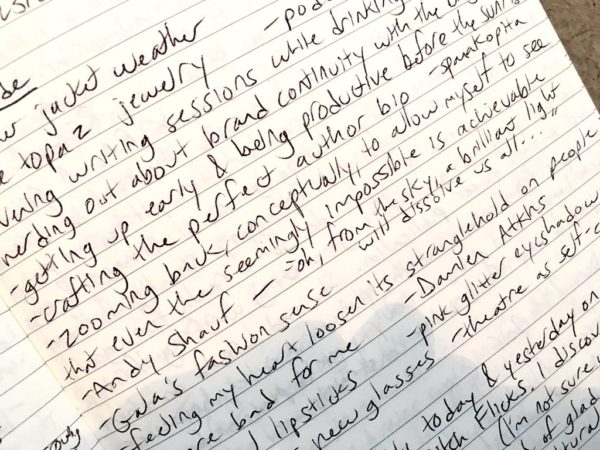 jacket weather
topaz jewelry
writing sessions while drinking
nerding out about brand continuity with the
-getting up early & being productive before the sunrise
-crafting the perfect author bio -spanakopita
-zooming back, conceptually, to allow myself to see
that even the seemingly impossible is achievable
-Andy Shauf — "oh, from the sky, a brilliant light
will dissolve us all..."
-Gala's fashion sense
-feeling my heart loosen its stranglehold on people
bad for me -Damien Atkins
lipsticks -pink glitter eyeshadow
new glasses -theatre as self-c
today & yesterday on
Flicks. I discov
(I'm not sure
of glad